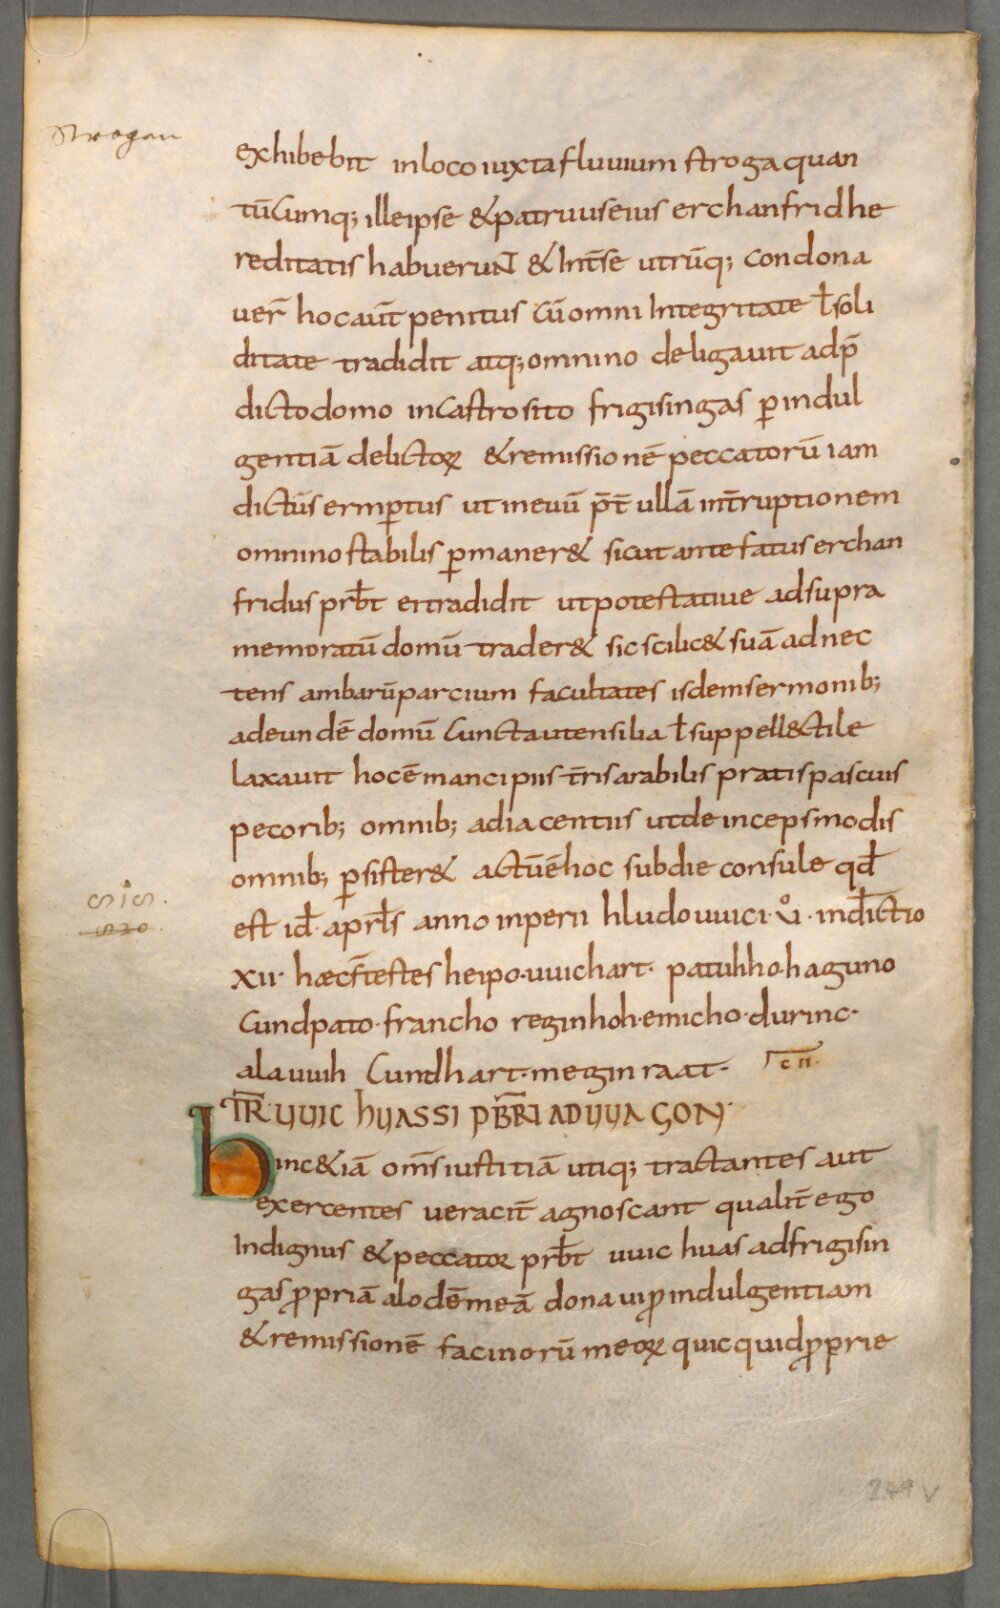 Strogan
exhibebit in loco iuxta fluuium stroga quan
tūcumq; ille ipse & patruus eius erchanfrid he
reditatis habuerunt & int̄ se utrūq; condona
uer̄ hoc aūt penitus cū omni Integritate ł soli
ditate tradidit atq; omnino deligauit ad p̄
dicto domo in castro sito frigisingas ꝑ indul
gentiā delictoꝝ & remissionē peccatorū iam
dictus ermꝑtus ut in euū p̄t ullā int̄ruptionem
omnino stabilis ꝑmaner& sicut ante fatus erchan
fridus prb̄t ei tradidit ut potestatiue ad supra
memoratū domū trader& sic scilic& suā ad nec
tens ambarū parcium facultates isdem sermonib;
ad eundē domū cuncta utensilia ł suppell&tile
laxauit hoc ē mancipiis t̄ris arabilis pratis pascuis
pecorib; omnib; adiacentiis ut deinceps modis
omnib; ꝑsister& actū ē hoc sub die consule qđ
est iđ· apr̄ls anno inperii hludouuici· ui· inđictio
xii· haec s̄ testes heipo· uuichart· patuhho· haguno
Cundpato· francho reginhoh· emicho· durinc·
alauuih Cundhart· meginraat·
cii·
SIS·
820·
TR̄· UUIC HUASSI PB̄RI AD UUAGON·
hinc & iā om̄s iustitiā utiq; tractantes aut
exercentes ueracit̄ agnoscant qualit̄ ego
Indignus & peccatoꝛ prb̄t uuic huas ad frigisin
gas ꝓpriā alodē meā donaui ꝓ indulgentiam
& remissionē facinorū meoꝝ quicquid ꝓprie
249 v